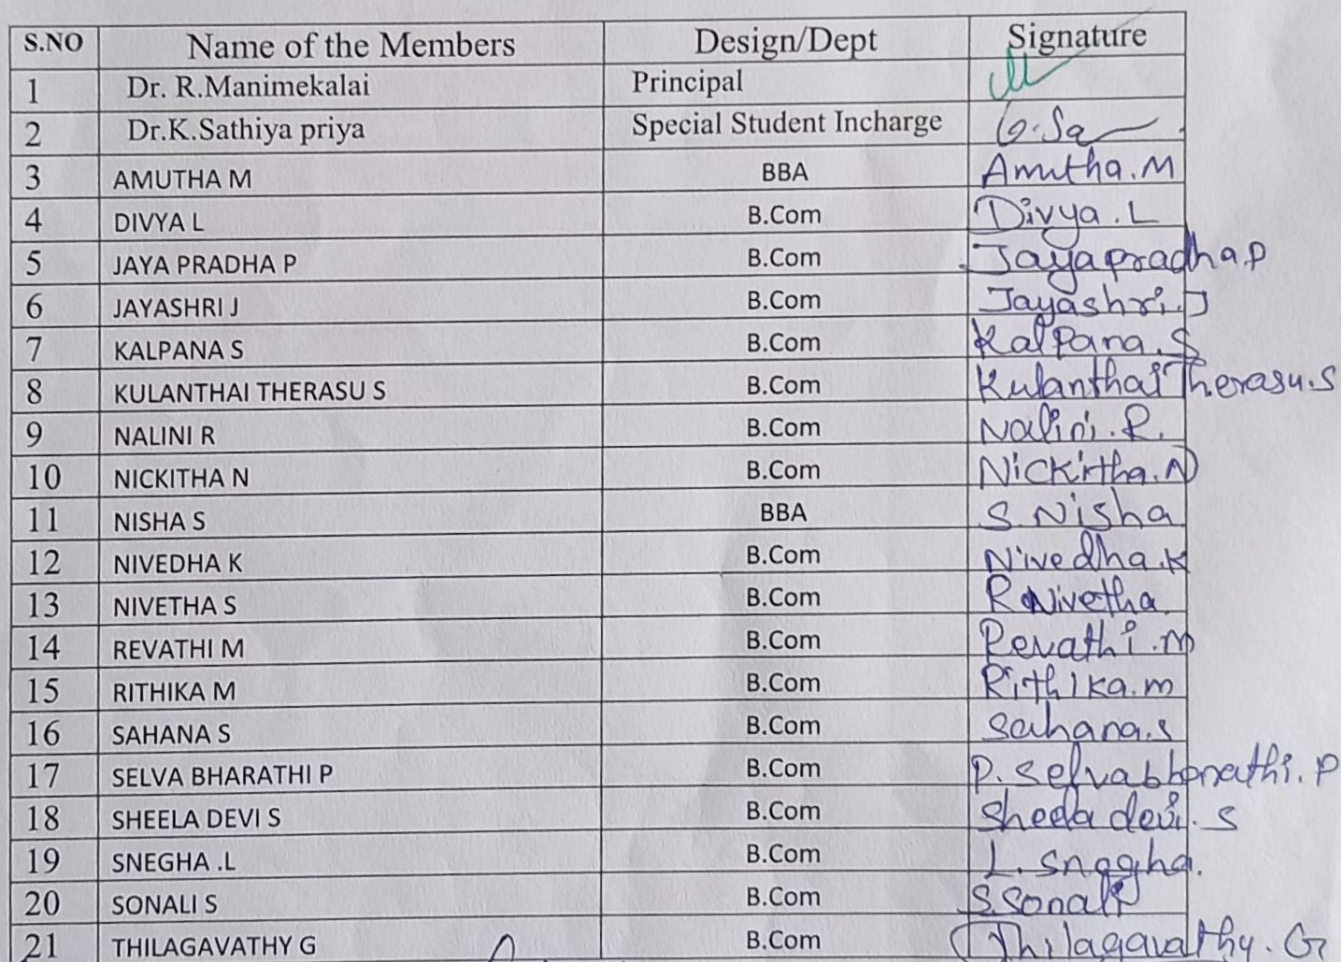 S.NO Name of the Members Design/Dept Signature
1 Dr. R.Manimekalai Principal
2 Dr.K.Sathiya priya Special Student Incharge
3 AMUTHA M BBA Amutha.M
4 DIVYA L B.Com Divya.L
5 JAYA PRADHA P B.Com Jayapradha.p
6 JAYASHRI J B.Com Jayashri.J
7 KALPANA S B.Com Kalpana.S
8 KULANTHAI THERASU S B.Com Kulanthai Therasu.S
9 NALINI R B.Com Nalini.R.
10 NICKITHA N B.Com Nickitha.N
11 NISHA S BBA S Nisha
12 NIVEDHA K B.Com Nivedha.K
13 NIVETHA S B.Com R Nivetha
14 REVATHI M B.Com Revathi.M
15 RITHIKA M B.Com Rithika.m
16 SAHANA S B.Com Sahana.S
17 SELVA BHARATHI P B.Com P. Selvabharathi.P
18 SHEELA DEVI S B.Com Sheela devi.S
19 SNEGHA .L B.Com L. Snegha.
20 SONALI S B.Com S.Sonali
21 THILAGAVATHY G B.Com Thilagavathy.G